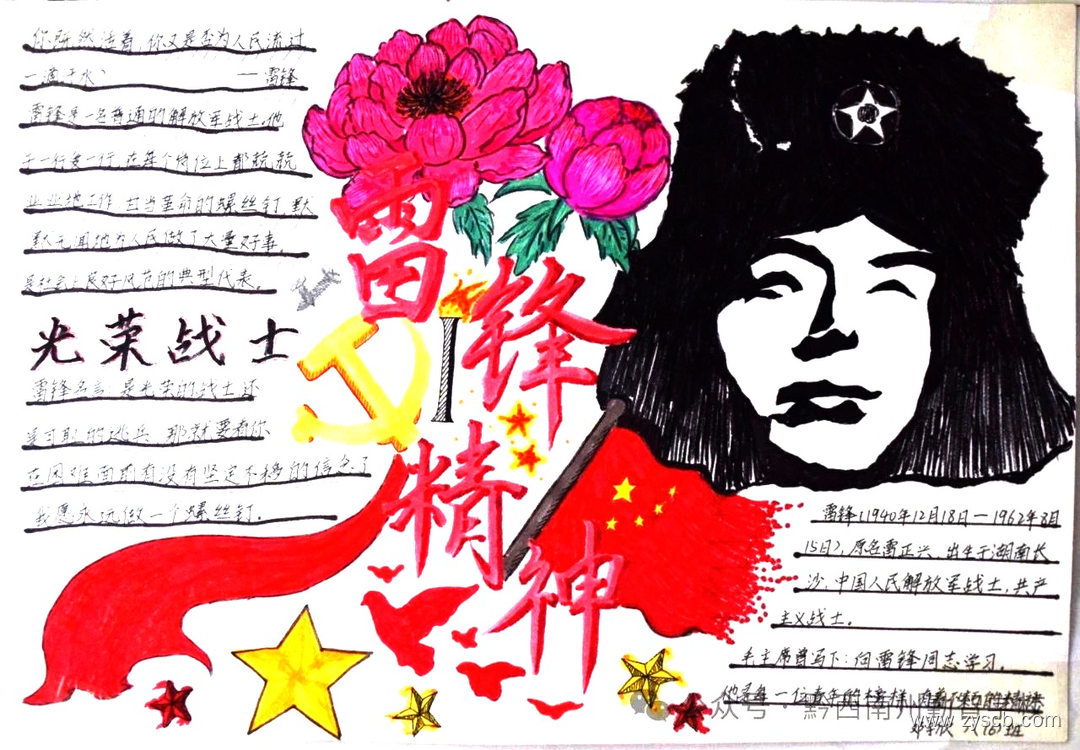 你既然活着,你又是否为人民流过
一滴汗水、 —雷锋
雷锋是一名普通的解放军战士,他
干一行爱一行,在每个岗位上都兢兢
业业地工作,甘当革命的螺丝钉,默
默无闻地为人民做了大量好事,
是社会上良好风范的典型代表。
光荣战士
雷锋名言 是光荣的战士还
是可耻的逃兵,那就要看你
在困难面前有没有坚定不移的信念了
我愿永远做一个螺丝钉.
雷锋
精神
雷锋(1940年12月18日—1962年8月
15日),原名雷正兴,出生于湖南长
沙,中国人民解放军战士,共产
主义战士.
毛主席曾写下:向雷锋同志学习.
他是每一位青年的榜样,
六(6)班
公众号·黔西南州
www.zyscb.com